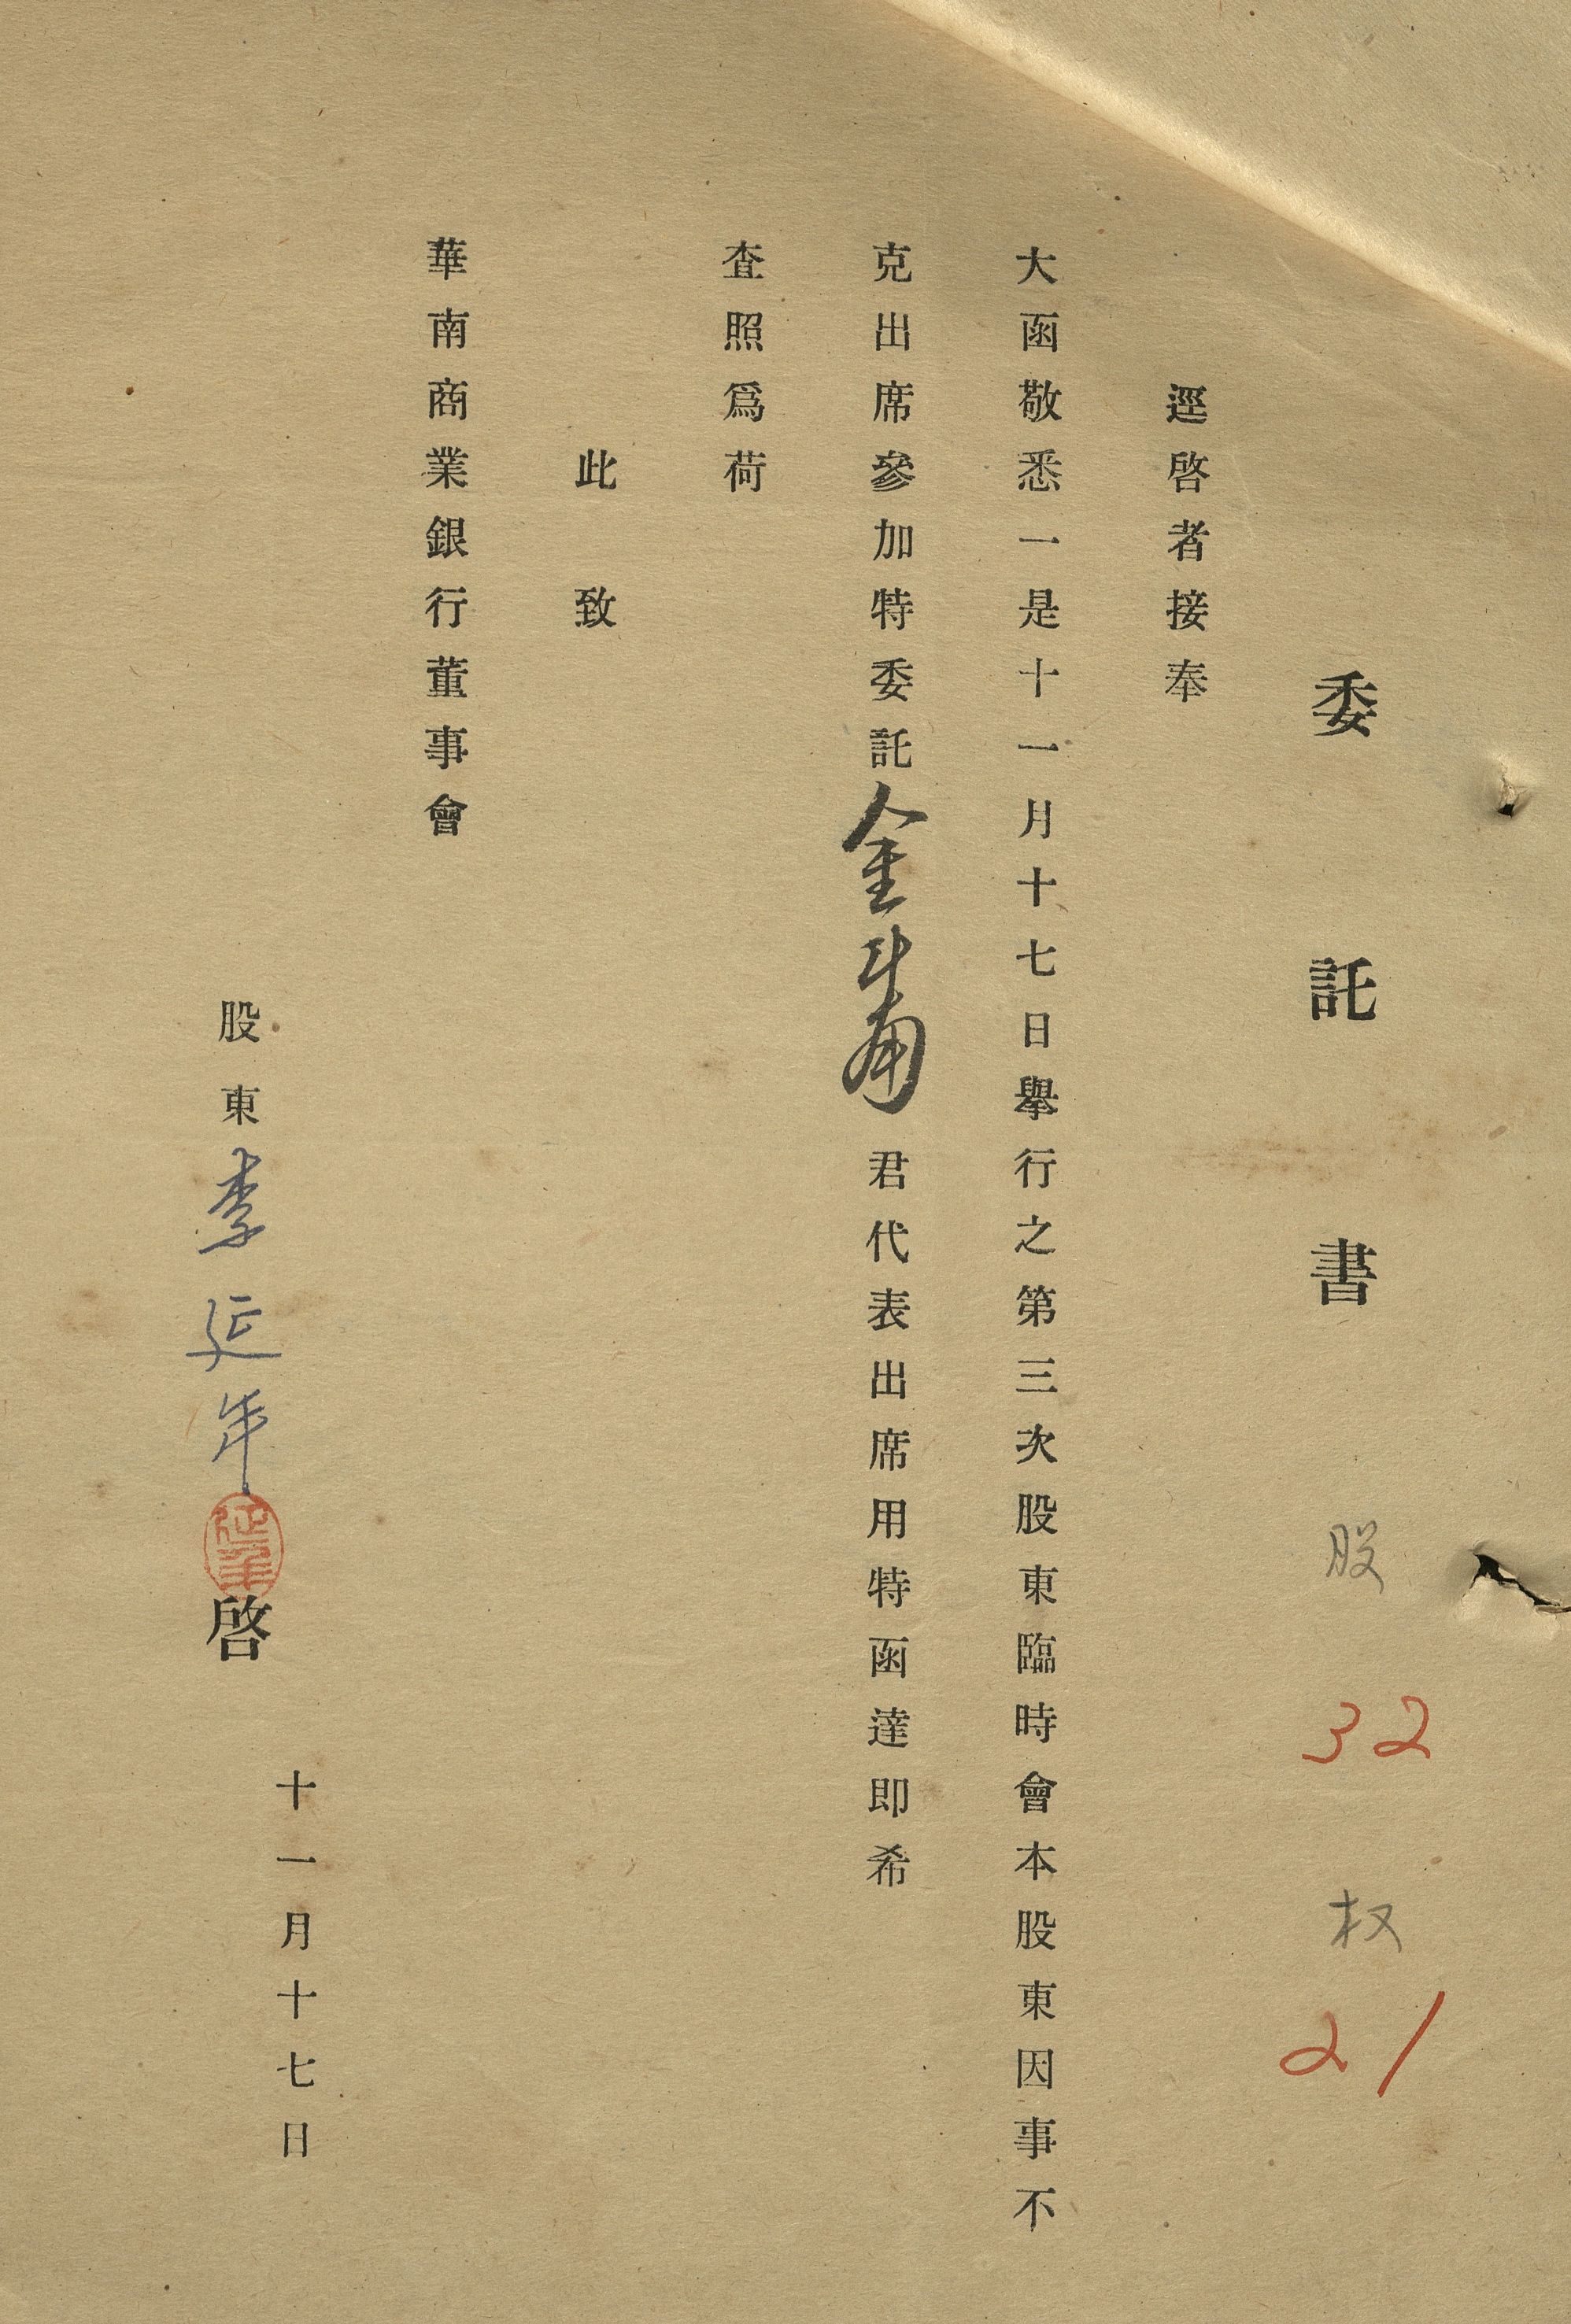 委託書
股
32
权
21
逕啓者接奉
大函敬悉一是十一月十七日舉行之第三次股東臨時會本股東因事不
克出席參加特委託金斗甫君代表出席用特函達即希
查照爲荷
此致
華南商業銀行董事會
股東李延年啓
延年
十一月十七日